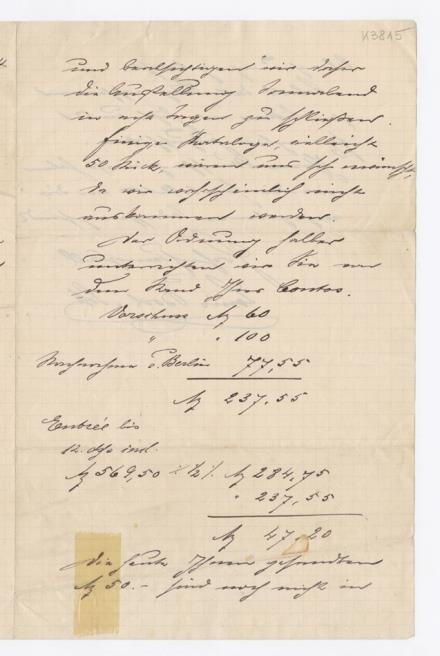 K3815
und beabsichtigen wir daher
die Ausstellung Sonnabend
in acht Tagen zu schließen.
Einige Kataloge, vielleicht
50 Stück, wären uns sehr erwünscht,
da wir wahrscheinlich nicht
auskommen werden.
Der Ordnung halber
unterrichten wir Sie von
dem Stand Ihres Contos.
Vorschuss M 60
" " 100
Nachnahme v. Berlin 77,55
M 237.55
Entrée bis
12. dfs incl.
M 569,50 ½ M 284,75
" 237,55
M 47.20
Die heute Ihnen gesandten
M 50.- sind noch nicht in